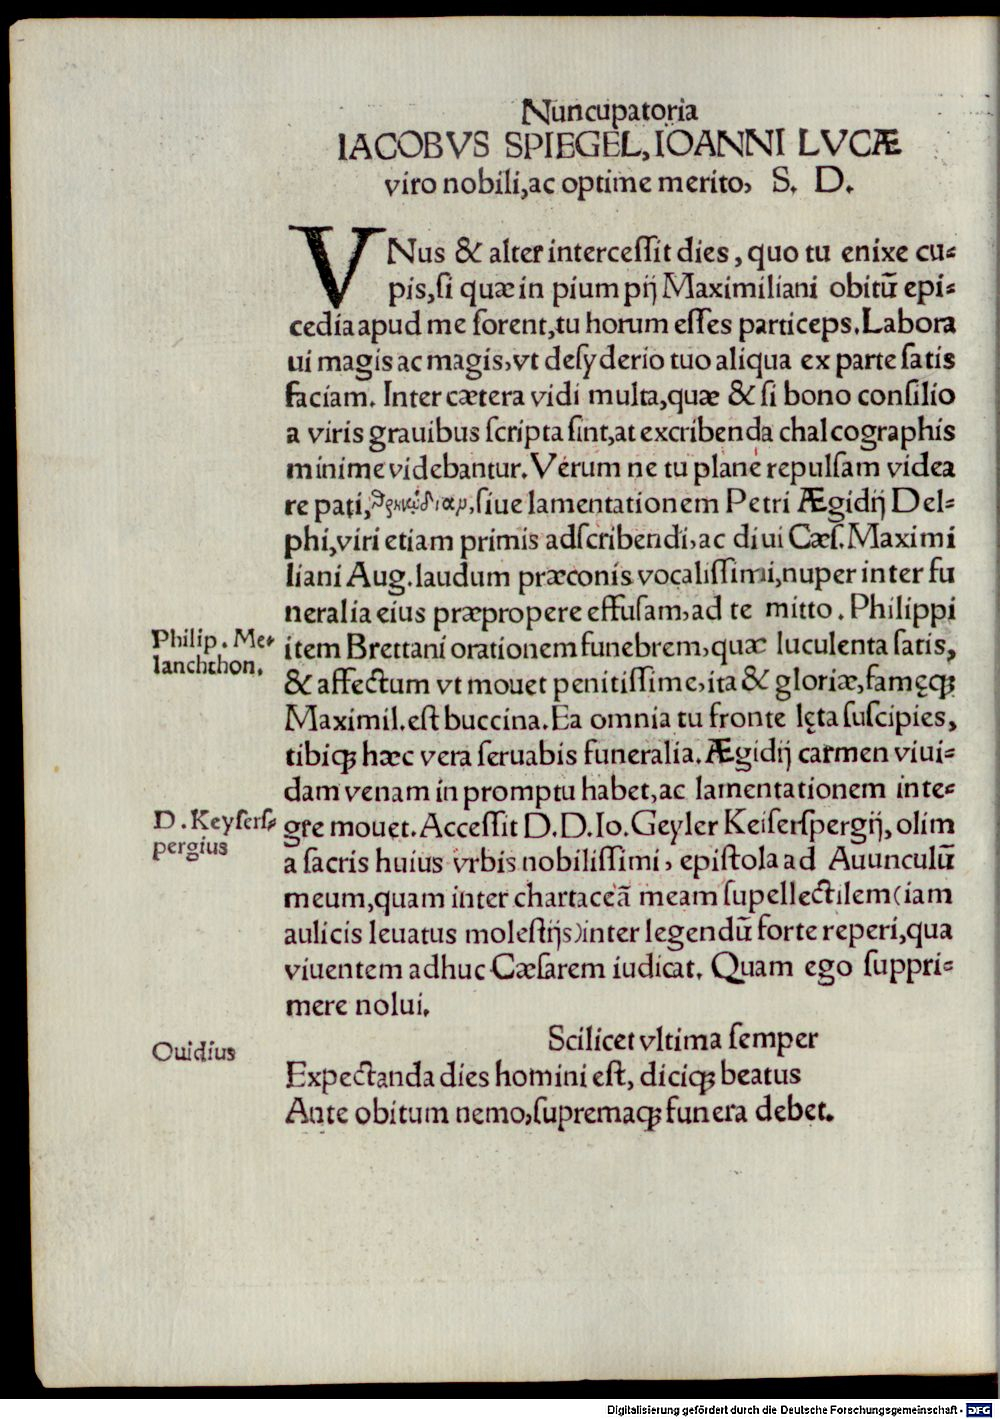 Nuncupatoria
IACOBVS SPIEGEL, IOANNI LVCÆ
viro nobili, ac optime merito, S. D.
VNus & alter intercessit dies, quo tu enixe cu⸗
pis, si quæ in pium pij Maximiliani obitũ epi⸗
cedia apud me forent, tu horum esses particeps. Labora
ui magis ac magis, vt desyderio tuo aliqua ex parte satis
faciam. Inter cætera vidi multa, quæ & si bono consilio
a viris grauibus scripta sint, at excribenda chalcographis
minime videbantur. Verum ne tu plane repulsam videa
re pati, siue lamentationem Petri Ægidij Del⸗
phi, viri etiam primis adscribendi, ac diui Cæs. Maximi
liani Aug. laudum præconis vocalissimi, nuper inter fu
neralia eius præpropere effusam, ad te mitto. Philippi
Philip. Me⸗
lanchthon.
item Brettani orationem funebrem, quæ luculenta satis,
& affectum vt mouet penitissime, ita & gloriæ, famęqꝫ
Maximil. est buccina. Ea omnia tu fronte lęta suscipies,
tibiqꝫ hæc vera seruabis funeralia. Ægidij carmen viui⸗
dam venam in promptu habet, ac lamentationem inte⸗
D. Keysers⸗
pergius
gre mouet. Accessit D. D. Io. Geyler Keiserspergij, olim
a sacris huius vrbis nobilissimi, epistola ad Auunculũ
meum, quam inter chartaceã meam supellectilem (iam
aulicis leuatus molestijs) inter legendũ forte reperi, qua
viuentem adhuc Cæsarem iudicat. Quam ego suppri⸗
mere nolui.
Scilicet vltima semper
Ouidius
Expectanda dies homini est, diciqꝫ beatus
Ante obitum nemo, supremaqꝫ funera debet.
Digitalisierung gefördert durch die Deutsche Forschungsgemeinschaft - DFG